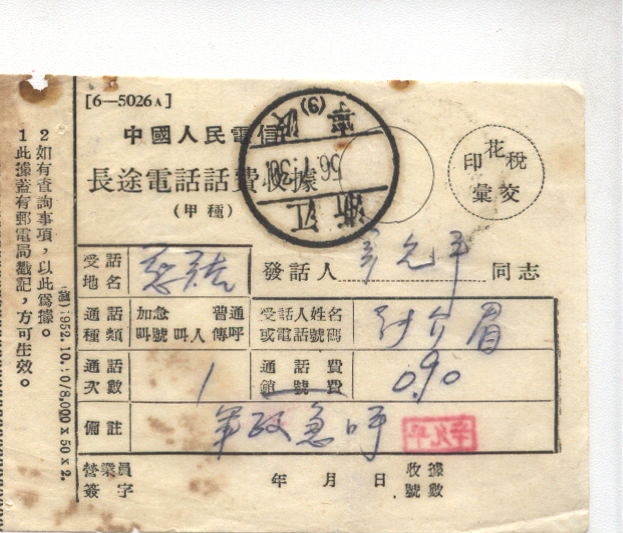 [6—5026A]
中國人民電信
長途電話話費收據
(甲種)
印花稅
彙交
浙江
56.1.30
(9)
受話
地名
發話人
同志
通話
種類
加急 普通
叫號 叫人 傳呼
受話人姓名
或電話號碼
通話
次數
1
通話費
銷號費
0.90
備註
軍政急呼
營業員
簽字
年 月 日
收據
號數
2如有查詢事項，以此爲據。
1此據蓋有郵電局戳記，方可生效。
1952.10.
8,000×50×2.